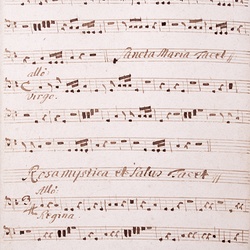 Sancta Maria tacet
allo:
Virgo.
Rosa mystica et Salus Tacet
Allo:
Regina